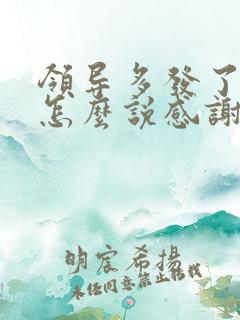 領导多發了
怎麼説感謝
明宸希揚
未经同意禁止转载